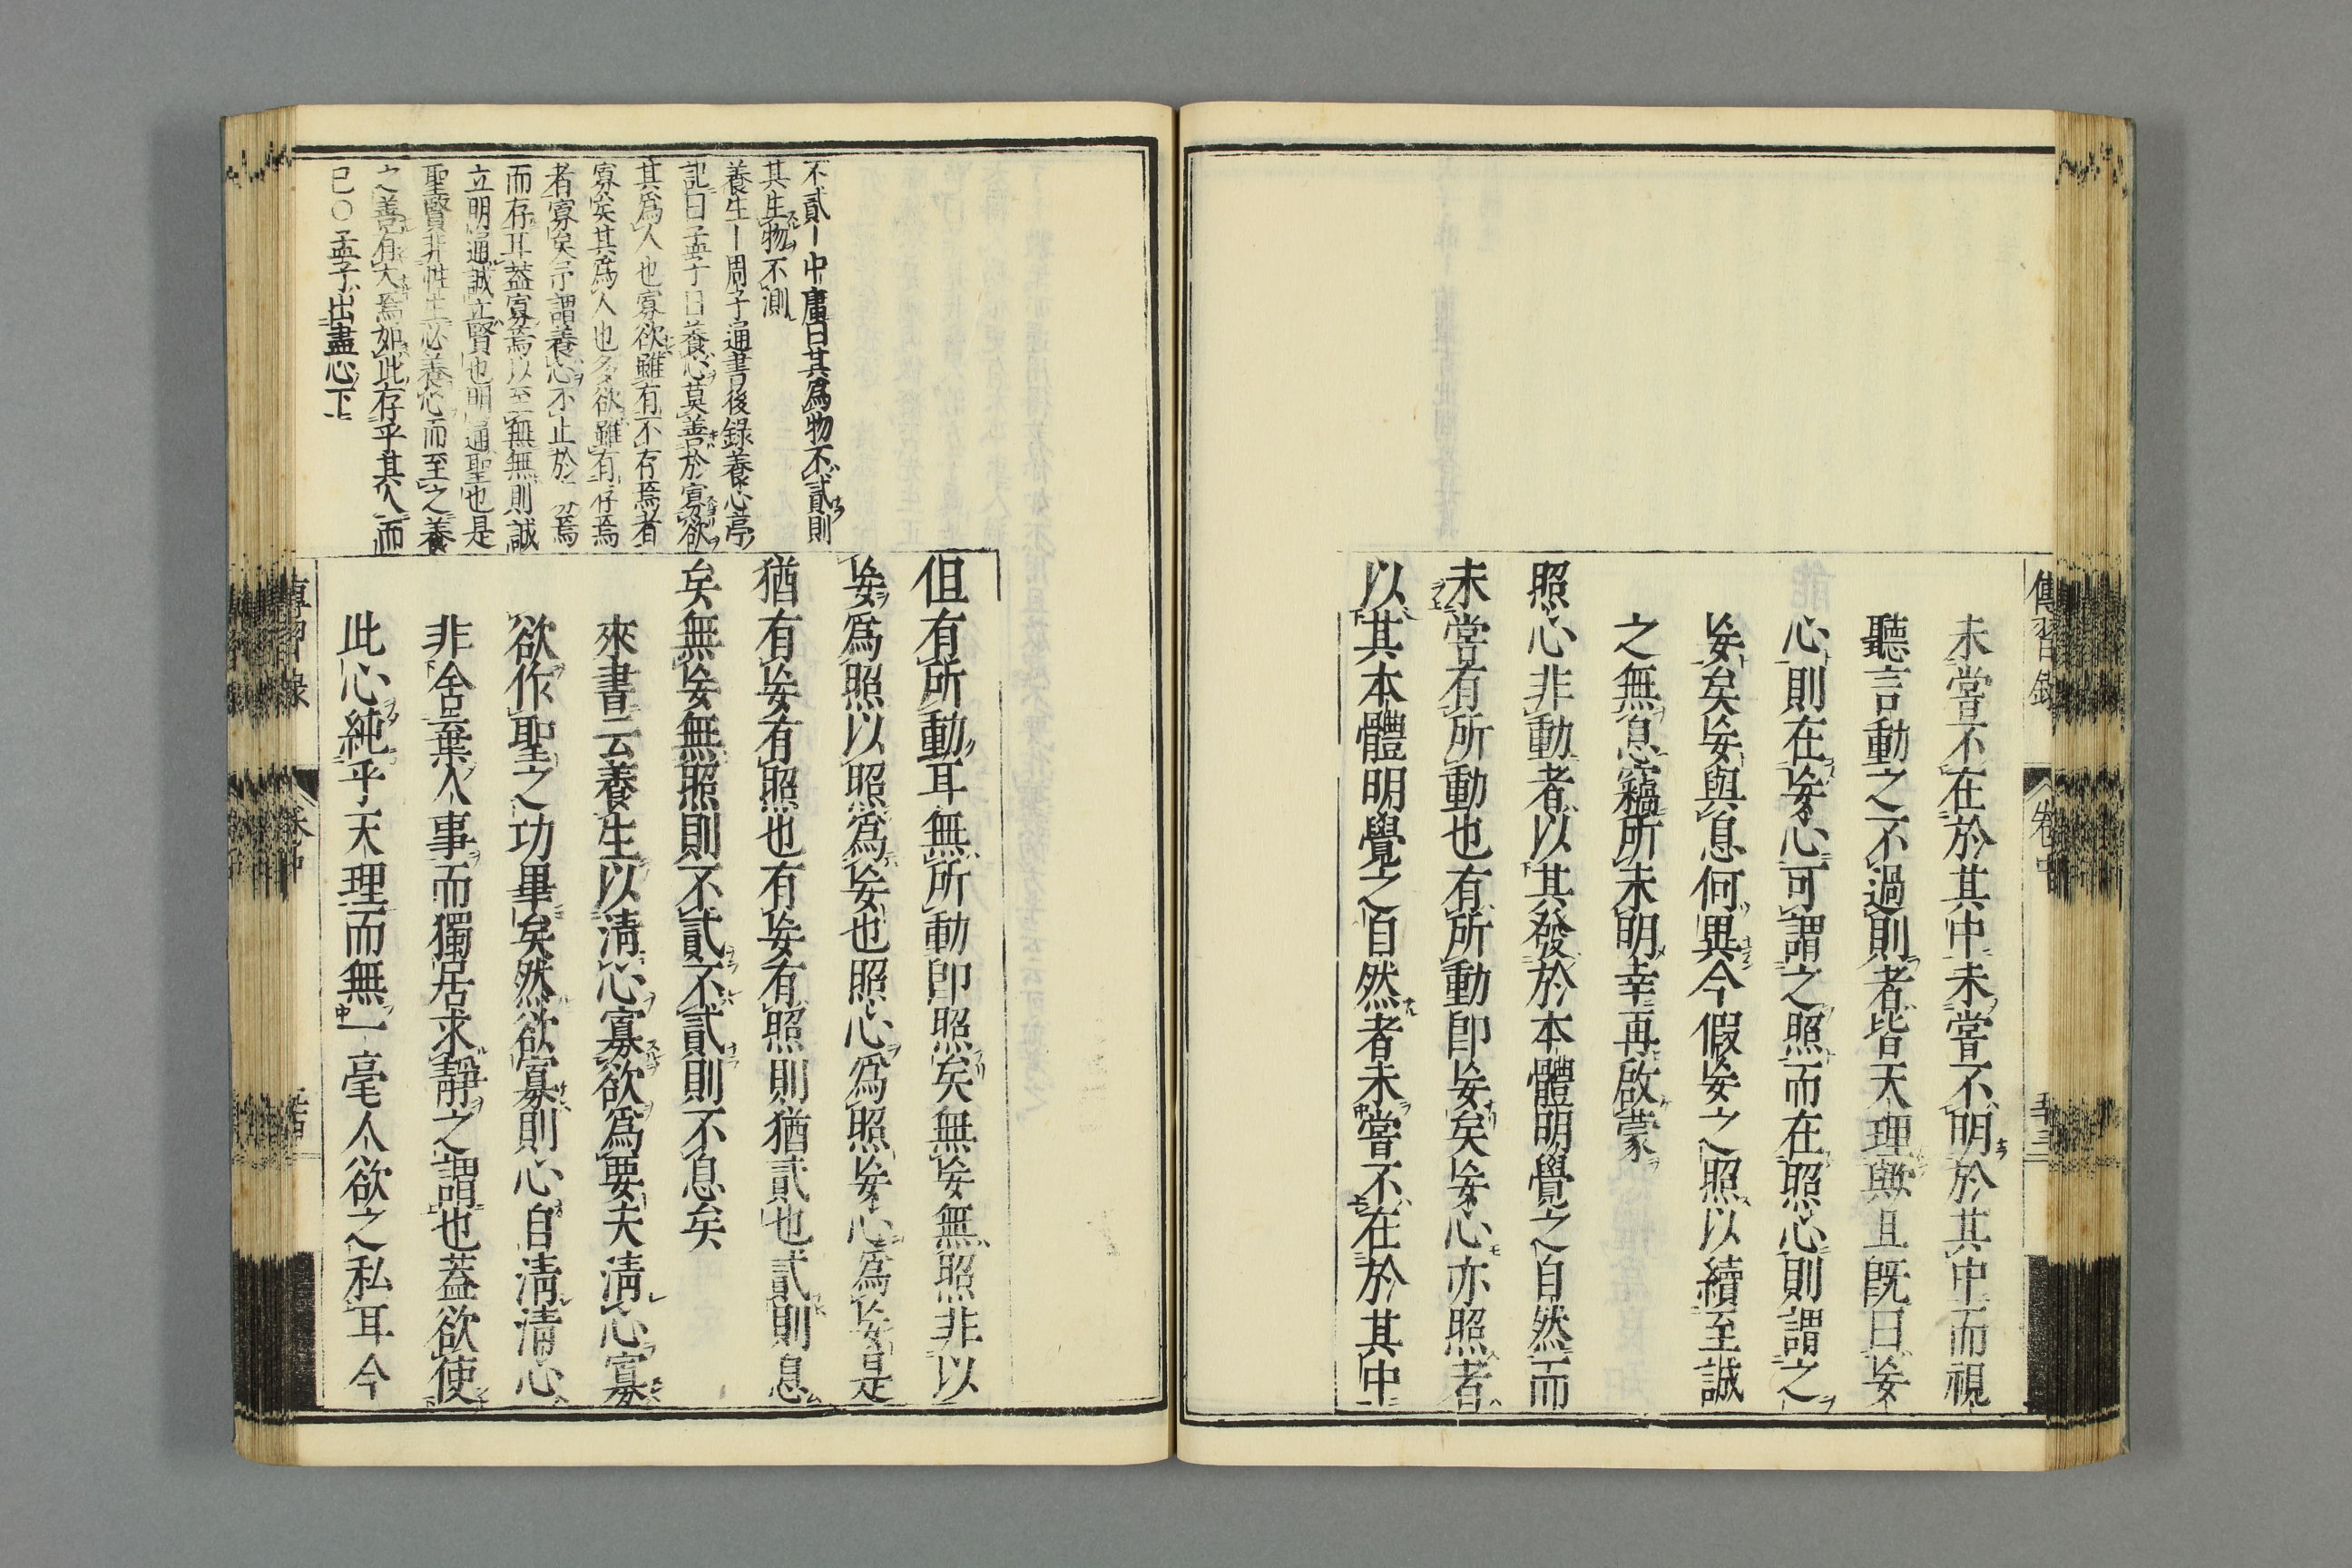 傳習錄
卷中
五十三
未嘗不在於其中未嘗不明於其中而視
聽言動之不過則者皆天理與且既曰妄
心則在妄心可謂之照而在照心則謂之
妄矣妄與息何異今假妄之照以續至誠
之無息竊所未明幸再啟蒙
照心非動者以其發於本體明覺之自然而
未嘗有所動也有所動即妄矣妄心亦照者
以其本體明覺之自然者未嘗不在於其中
不貳｜中庸曰其爲物不貳則
其生物不測
養生｜周子通書後錄養心亭
記曰孟子曰養心莫善於寡欲
其爲人也寡欲雖有不存焉者
寡矣其爲人也多欲雖有存焉
者寡矣予謂養心不止於寡焉
而存耳蓋寡焉以至無無則誠
立明通誠立賢也明通聖也是
聖賢非性生必養心而至之養
之善有大焉如此存乎其人而
已○孟子出盡心下
但有所動耳無所動即照矣無妄無照非以
妄爲照以照爲妄也照心爲照妄心爲妄是
猶有妄有照也有妄有照則猶貳也貳則息
矣無妄無照則不貳不貳則不息矣
來書云養生以清心寡欲爲要夫清心寡
欲作聖之功畢矣然欲寡則心自清清心
非舍棄人事而獨居求靜之謂也蓋欲使
此心純乎天理而無一毫人欲之私耳今
傳習錄
卷中